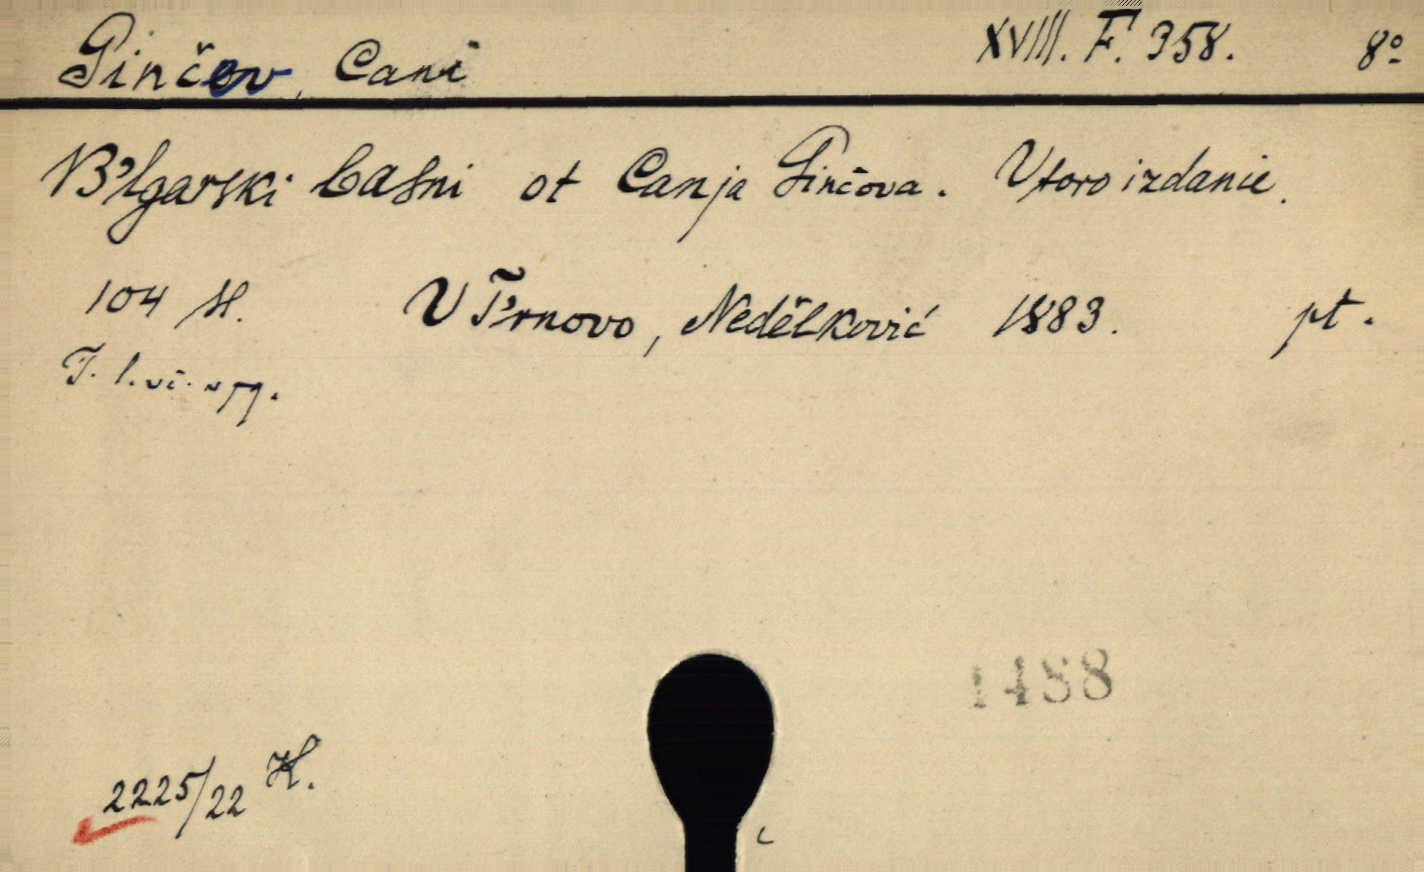 Ginčev, Cani XVIII. F. 358. 8º
B'lgarski basni ot Canja Ginčova. Vtoro izdanie.
104 st. V T'rnovo, Nedělković 1883. pt.
1488
2225/22 H.